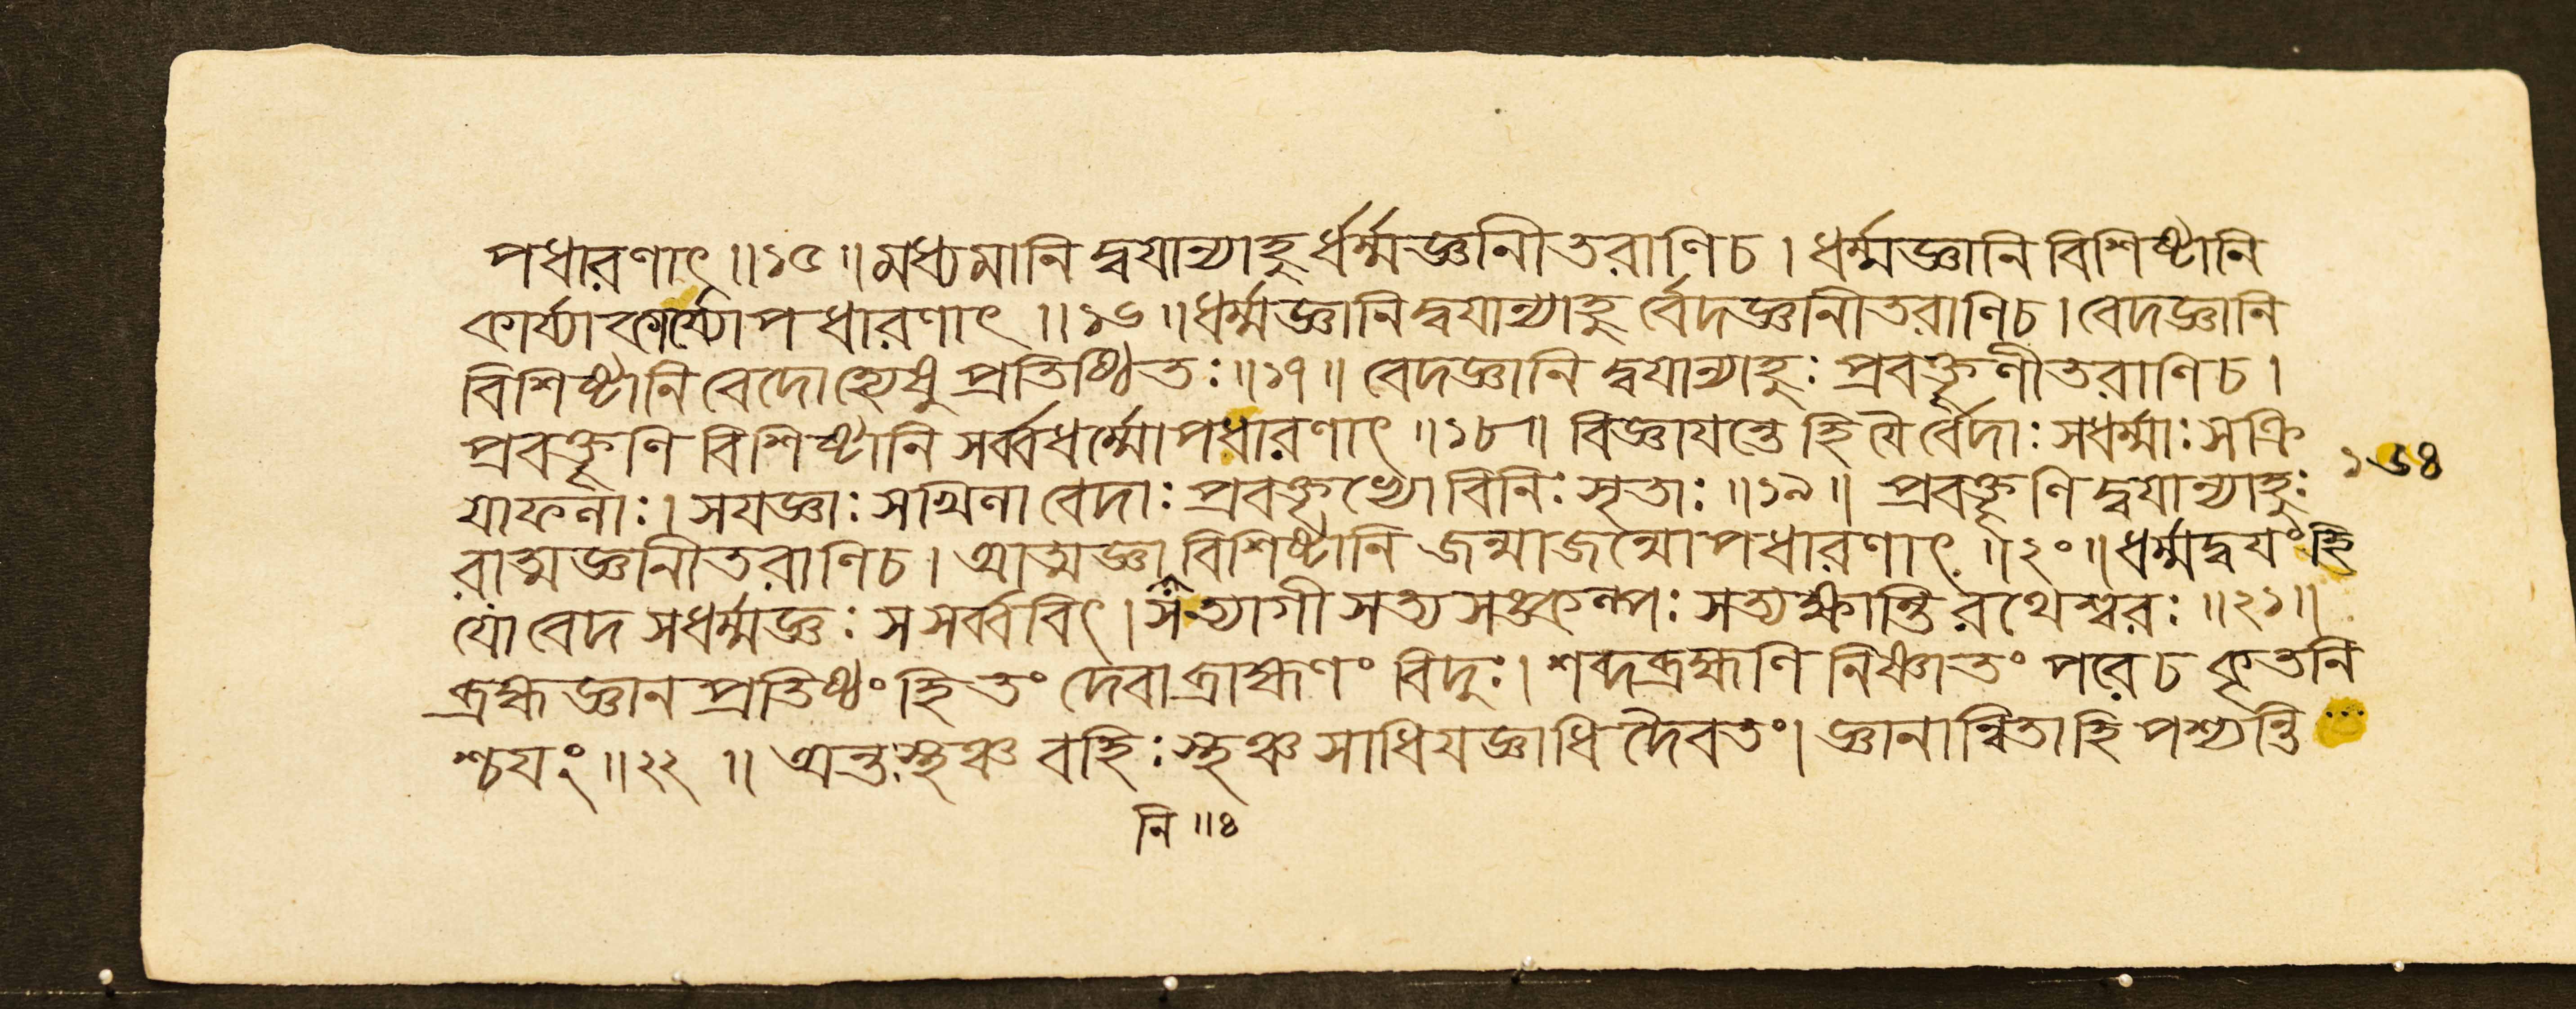 পধারণাৎ ॥১৫॥ মধ্যমানি দ্বযান্যাহু র্ধর্ম্মজ্ঞানীতরাণিচ । ধর্ম্মজ্ঞানি বিশিষ্টানি
কার্য্যাকার্য্যোপধারণাৎ ॥১৬॥ ধর্ম্মজ্ঞানি দ্বযান্যাহু র্বেদজ্ঞানীতরাণিচ । বেদজ্ঞানি
বিশিষ্টানি বেদোহ্যেষু প্রতিষ্ঠিতঃ ॥১৭॥ বেদজ্ঞানি দ্বযান্যাহুঃ প্রবক্তৃণীতরাণি চ ।
প্রবক্তৃণি বিশিষ্টানি সর্ব্বধর্ম্মোপধারণাৎ ॥১৮॥ বিজ্ঞাযন্তে হি যৈ র্বেদাঃ সধর্ম্মাঃ সক্রি
যাফলাঃ । সযজ্ঞাঃ সখিলা বেদাঃ প্রবক্তৃভ্যো বিনিঃসৃতাঃ ॥১৯॥ প্রবক্তৃণি দ্বযান্যাহুঃ
রাত্মজ্ঞানীতরাণিচ । আত্মজ্ঞা বিশিষ্টানি জন্মাজন্মোপধারণাৎ ॥২০॥ ধর্ম্মদ্বযং হি
যো বেদ সধর্ম্মজ্ঞঃ স সর্ব্ববিৎ । স ত্যাগী সত্যসঙ্কল্পঃ সত্যক্ষান্তি রথেশ্বরঃ ॥২১॥
ব্রহ্মজ্ঞানপ্রতিষ্ঠং হি তং দেবা ব্রাহ্মণং বিদুঃ । শব্দব্রহ্মণি নিষ্ণাতং পরে চ কৃতনি
শ্চযং ॥২২॥ অন্তস্থঞ্চ বহিঃস্থঞ্চ সাধিযজ্ঞাধিদৈবতং । জ্ঞানান্বিতাহি পশ্যন্তি ...
নি ॥৪
১৬৪